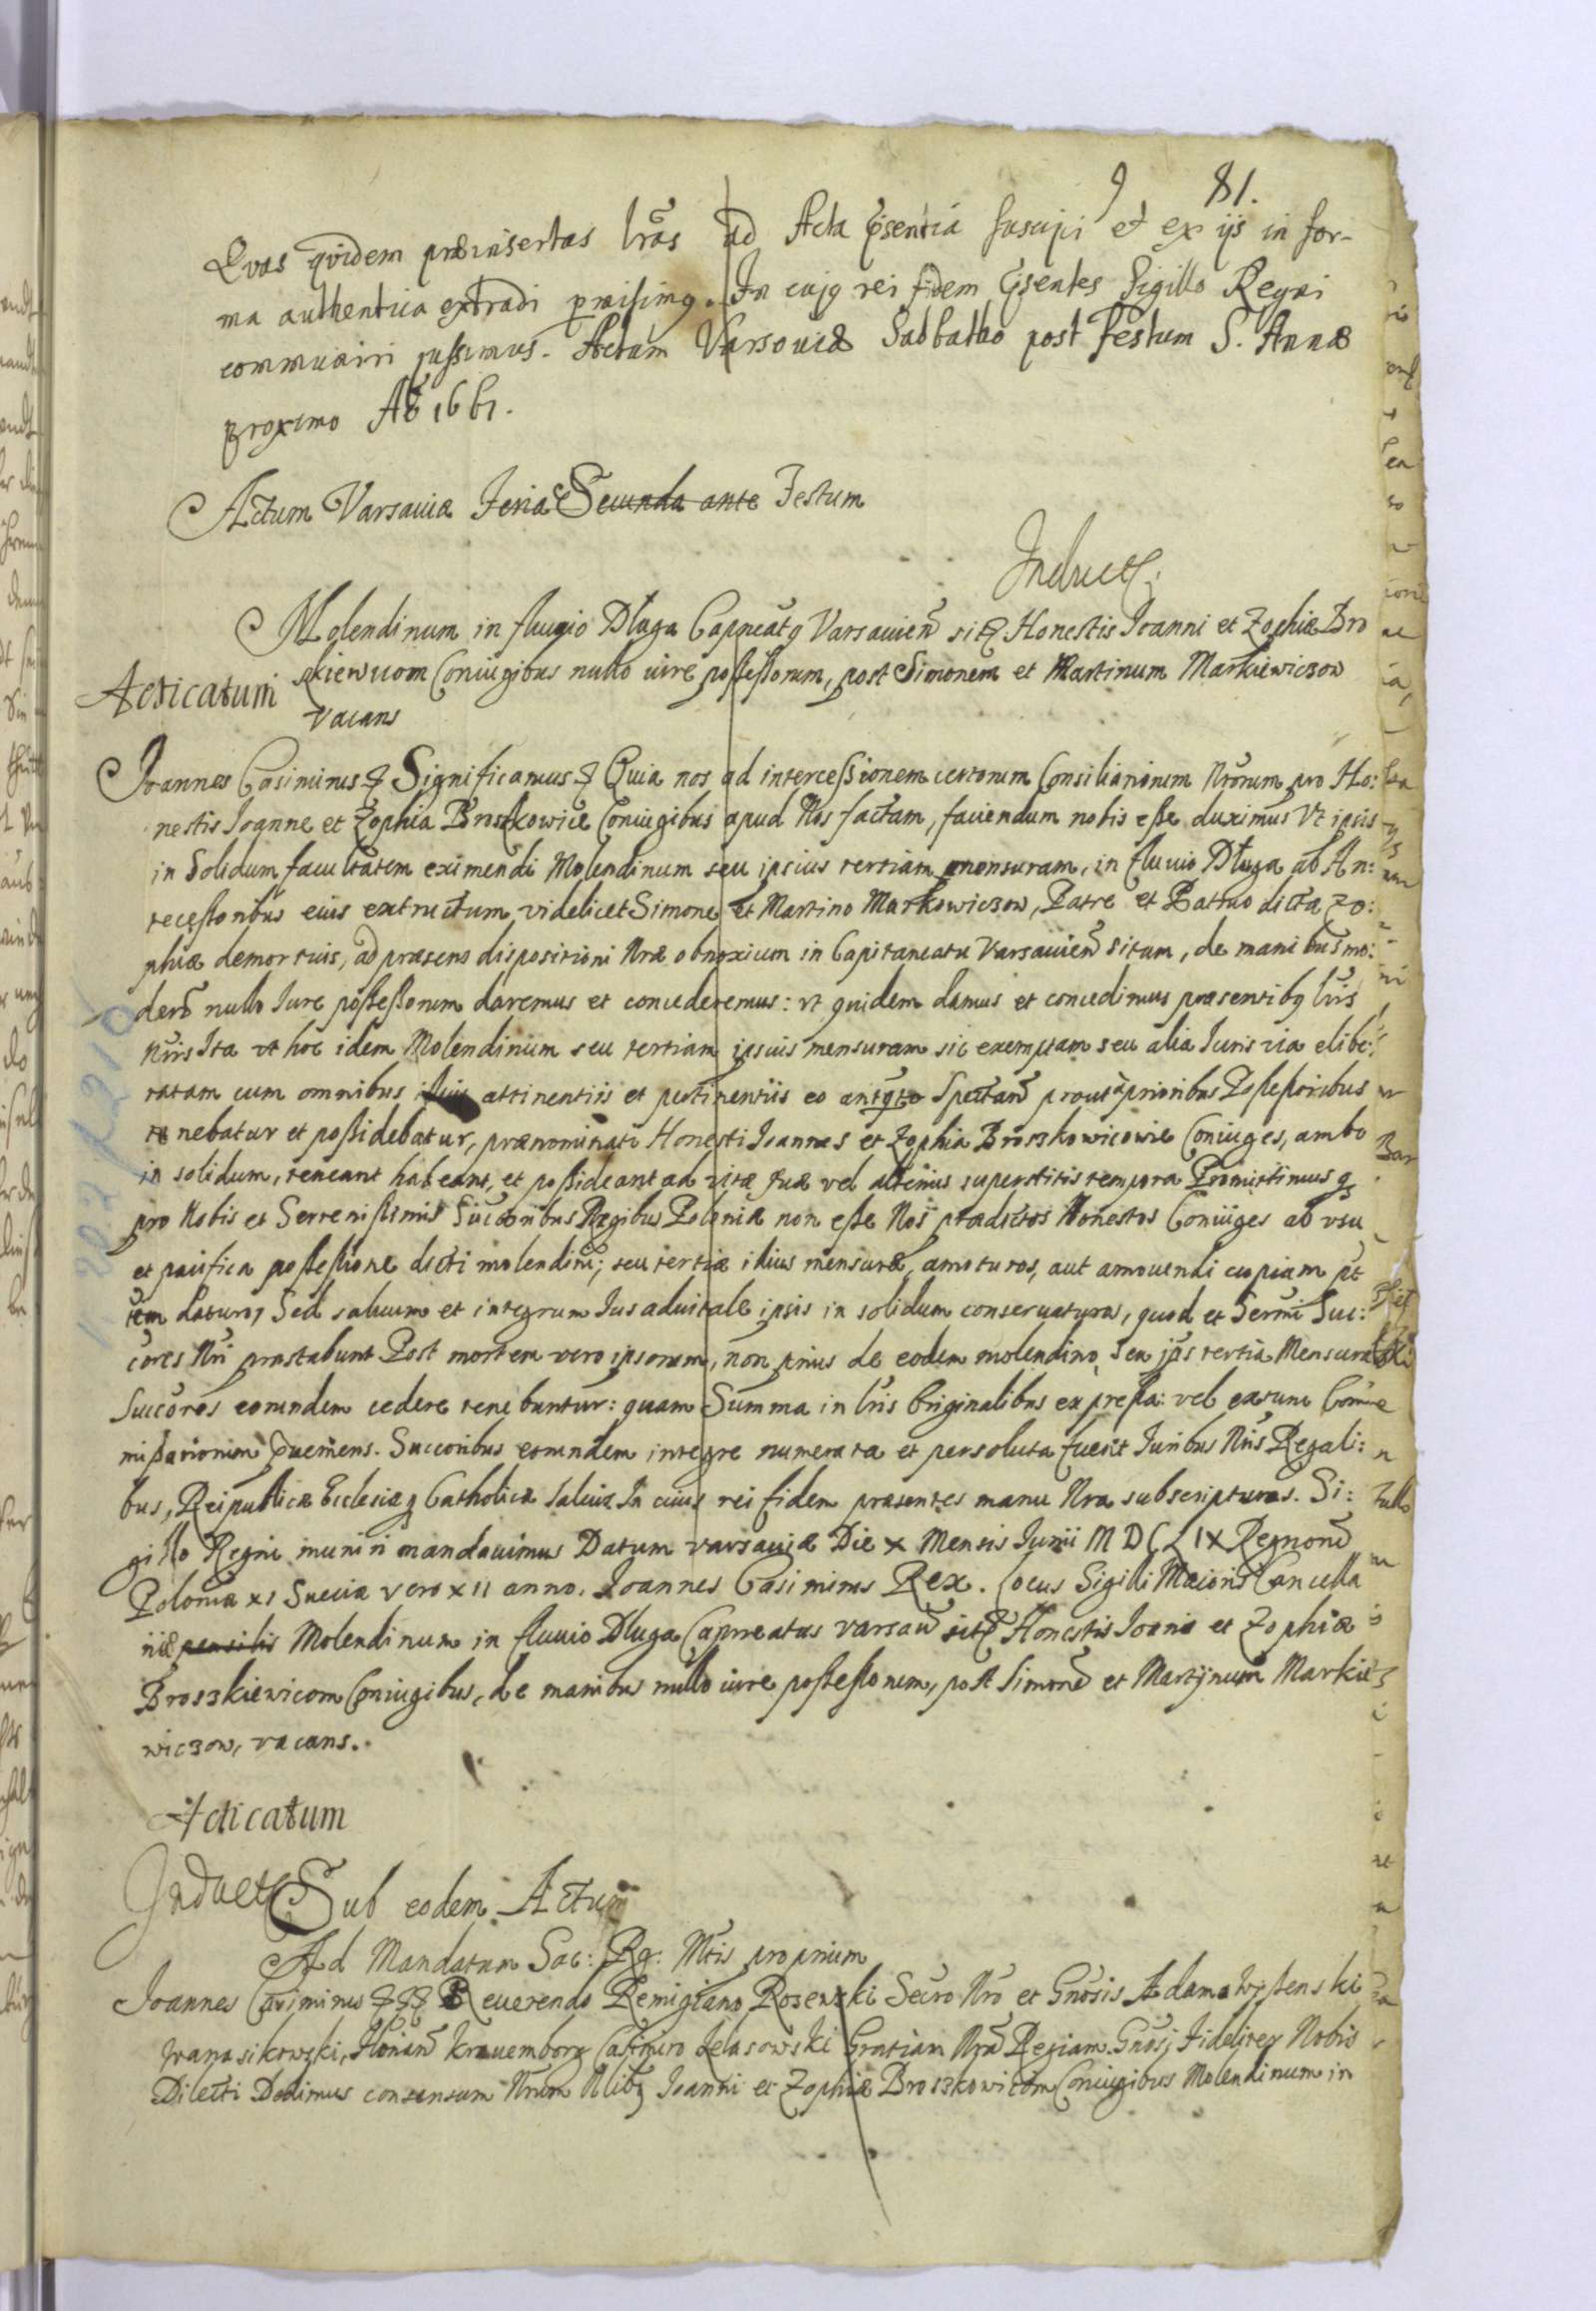 9 81.
Quas quidem præinsertas lrãs ad Acta pñsentia suscipi et ex ijs in for-
ma authentica extradi p̃misimq. In cujq rei fidem pñsentes Sigillo Regni
communiri jussimus. Actum Varsoviæ Sabbatho post festum S. Annæ
proximo Aõ 1661.
Actum Varsaviæ Feria Secunda ante Festum
Induct:
Molendinum in fluvio Dluga Capneatq Varsavien̄ sit Honestis Joanni et Zophiæ Bro
skiewicom Coniugibus nullo iure possessorum, post Simonem et Martinum Markiewiczow
Acticatum
vacans
Joannes Casimirus Significamus Quia nos ad intercessionem certorum Consiliariorum Nrorum pro Ho:
nestis Joanne et Zophia Broszkowice Coniugibus apud Nos factam, faciendum nobis esse duximus Vt ipsis
in Solidum facultatem eximendi Molendinum seu ipsius tertiam mensuram, in fluvio Długa ab An:
tecessoribus eius extructum, videlicet Simone et Martino Markowiczow, Patre et Patruo dictæ Zo:
phiæ demortuis, ad præsens dispositioni Nræ obnoxium in Capitaneatu Varsavien̄ situm, de manibus mo:
dern̄ nullo Jure possessorum daremus et concederemus: vt quidem damus et concedimus præsentibq lris
Nris Ita vt hoc idem Molendinum seu tertiam ipsius mensuram sic exemptam seu alia Juris via elibe:
ratam cum omnibus attinentiis et pertinentiis eo antqto Spectan̄ prout a prioribus Possessoribus
tenebatur et possidebatur, prænominati Honesti Joannes et Zophia Broszkowicowie Coniuges, ambo
in solidum, teneant habeant, et possideant ad vitæ suæ vel alterius superstitis tempora Promittimus q
pro Nobis et Serrenissimis Succoribus Regibus Poloniæ non esse Nos prædictos Honestos Coniuges ab vsu
et pacifica possessione dicti molendini, seu tertiæ illius mensuræ, amoturos, aut amovendi copiam pt
tem daturos, Sed salvum et integrum Jus advitale ipsis in solidum conservaturos, quod et Sermi Suc:
cores Nri præstabunt Post mortem vero ipsorum, non prius de eodem molendino, seu ijus tertia Mensura
Succores eorundem cedere tenebuntur: quam Summa in lris Originalibus expressa: vel ex
missariorum puemens. Succoribus eorundem integre numerata et persoluta fuerit Juribus Nris Regali:
bus, Reipublicæ Ecclesiæq Catholicæ Salvis. In cuius rei fidem præsentes manu Nra subscriptas. Si:
gillo Regni muniri mandavimus Datum varsaviæ Die X Mensis Junii MDCLIX Regnorũ
Poloniæ XI Sueciæ vero XII anno. Joannes Casimirus Rex. Locus Sigilli Maioris Cancella
riæ Molendinum in fluvio Dluga Capneatus varsav̄ sit Honestis Joanni et Zophiæ
Broszkiewicom Coniugibus, de manibus nullo iure possessorum, post Simonē et Martynum Markie
wiczow, vacans.
Acticatum
Induct Sub eodem Actum
Ad Mandatum Sac: Rg: Mtis proprium
Joannes Casimirus Reverendo Remigiano Secro Nro et Gnosis Adam
Gratiam Nrã Regiam. Gnosj Fideliteq Nobis
Dilecti Dedimus consensum Nrum Joanni et Zophiæ Broszkowicom Coniugibus Molendinum in